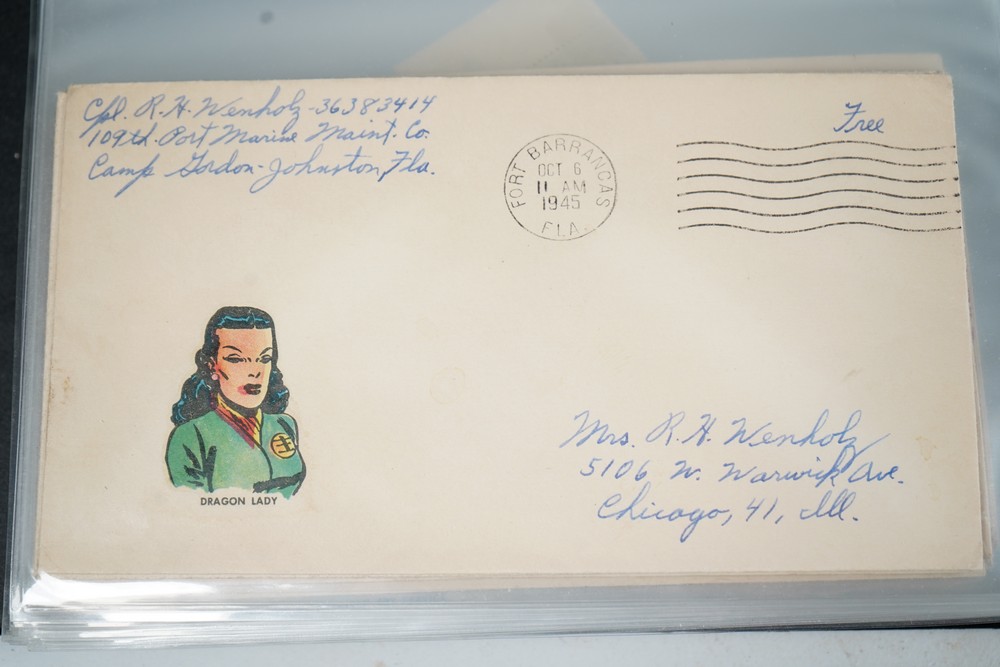 Cpl. R. H. Wenholz - 36383414
109th. Port Marine Maint. Co.
Camp Gordon-Johnston, Fla.
Free
FORT BARRANCAS
OCT 6
11 AM
1945
FLA.
主
DRAGON LADY
Mrs. R. H. Wenholz
5106 W. Warwick Ave.
Chicago, 41, Ill.